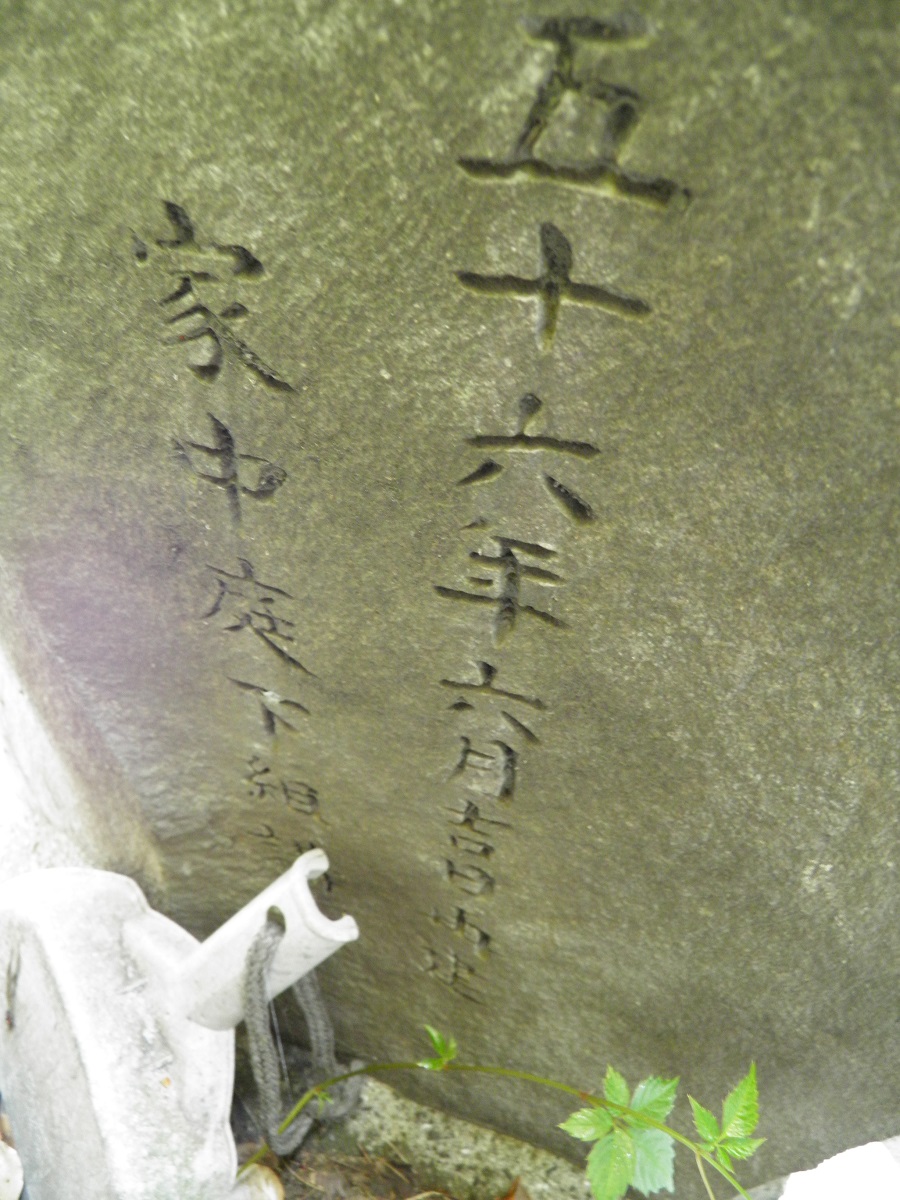 五十六年六月吉日建
家中庭下組